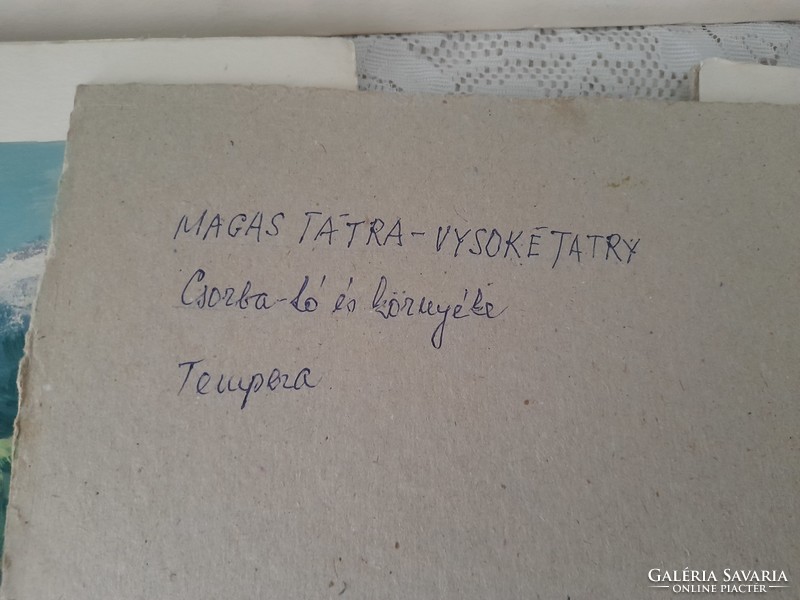 MAGAS TÁTRA - VYSOKÉ TATRY
Csorba-tó és környéke
Tempera
GALÉRIA SAVARIA
ONLINE PIACTÉR